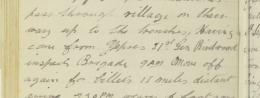 pass through village on their
way up to the trenches, Having
come from Ypres 31st Gen Birdwood
inspects Brigade 9AM Move off
again for billets 18 miles distant